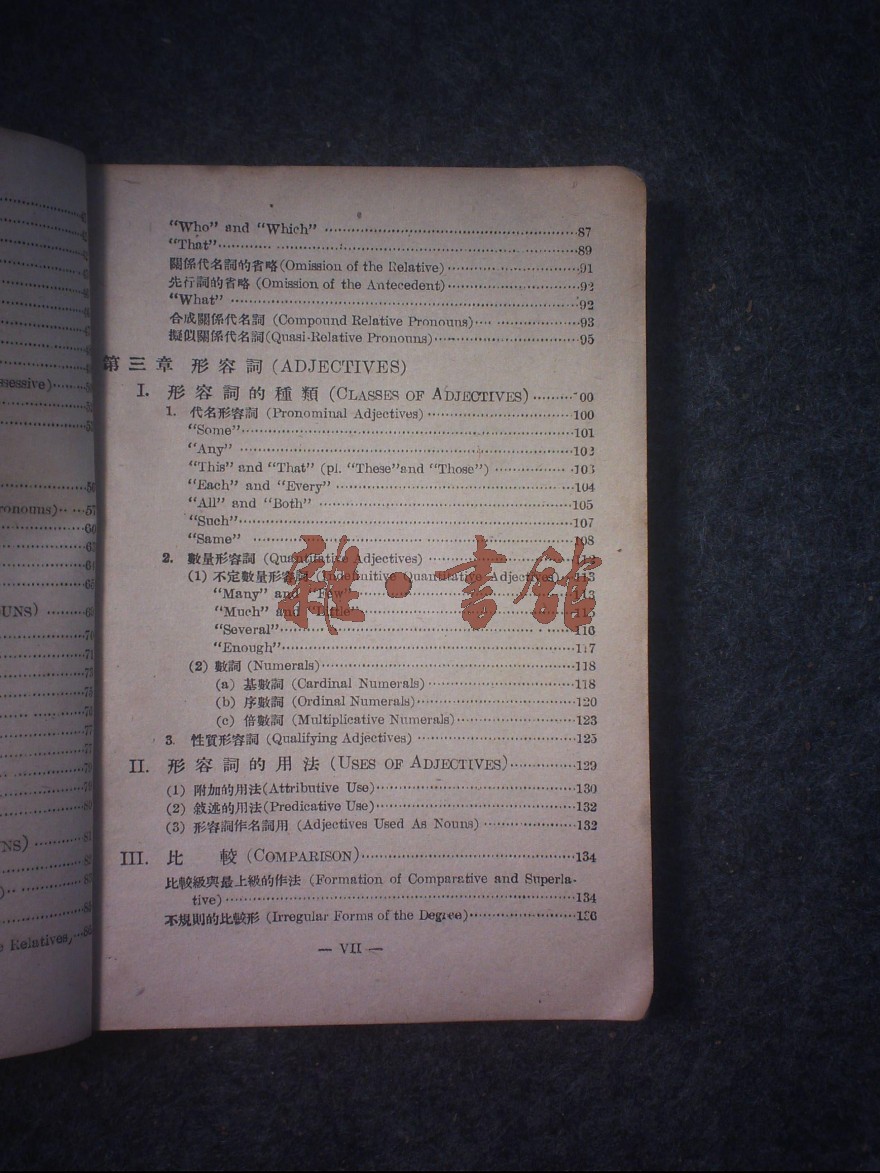 "Who" and "Which" 87
"That" 89
關係代名詞的省略(Omission of the Relative) 91
先行詞的省略 (Omission of the Antecedent) 92
"What" 92
合成關係代名詞 (Compound Relative Pronouns) 93
擬似關係代名詞(Quasi-Relative Pronouns) 95
第三章 形容詞(ADJECTIVES)
I. 形容詞的種類 (CLASSES OF ADJECTIVES) 00
1. 代名形容詞 (Pronominal Adjectives) 100
"Some" 101
"Any" 102
"This" and "That" (pl. "These"and "Those") 103
"Each" and "Every" 104
"All" and "Both" 105
"Such" 107
"Same" 108
2. 數量形容詞 (Quantitative Adjectives) 112
(1) 不定數量形容詞 (Indefinitive Quantitative Adjectives) 113
"Many" and "Few" 113
"Much" and "Little" 115
"Several" 116
"Enough" 117
(2) 數詞 (Numerals) 118
(a) 基數詞 (Cardinal Numerals) 118
(b) 序數詞 (Ordinal Numerals) 120
(c) 倍數詞 (Multiplicative Numerals) 123
3. 性質形容詞 (Qualifying Adjectives) 125
II. 形容詞的用法 (USES OF ADJECTIVES) 129
(1) 附加的用法(Attributive Use) 130
(2) 敘述的用法(Predicative Use) 132
(3) 形容詞作名詞用 (Adjectives Used As Nouns) 132
III. 比較 (COMPARISON) 134
比較級與最上級的作法 (Formation of Comparative and Superla-
tive) 134
不規則的比較形 (Irregular Forms of the Degree) 136
— VII —
雜·書館
ssessive)
ronouns) 57
UNS)
NS)
e Relatives,